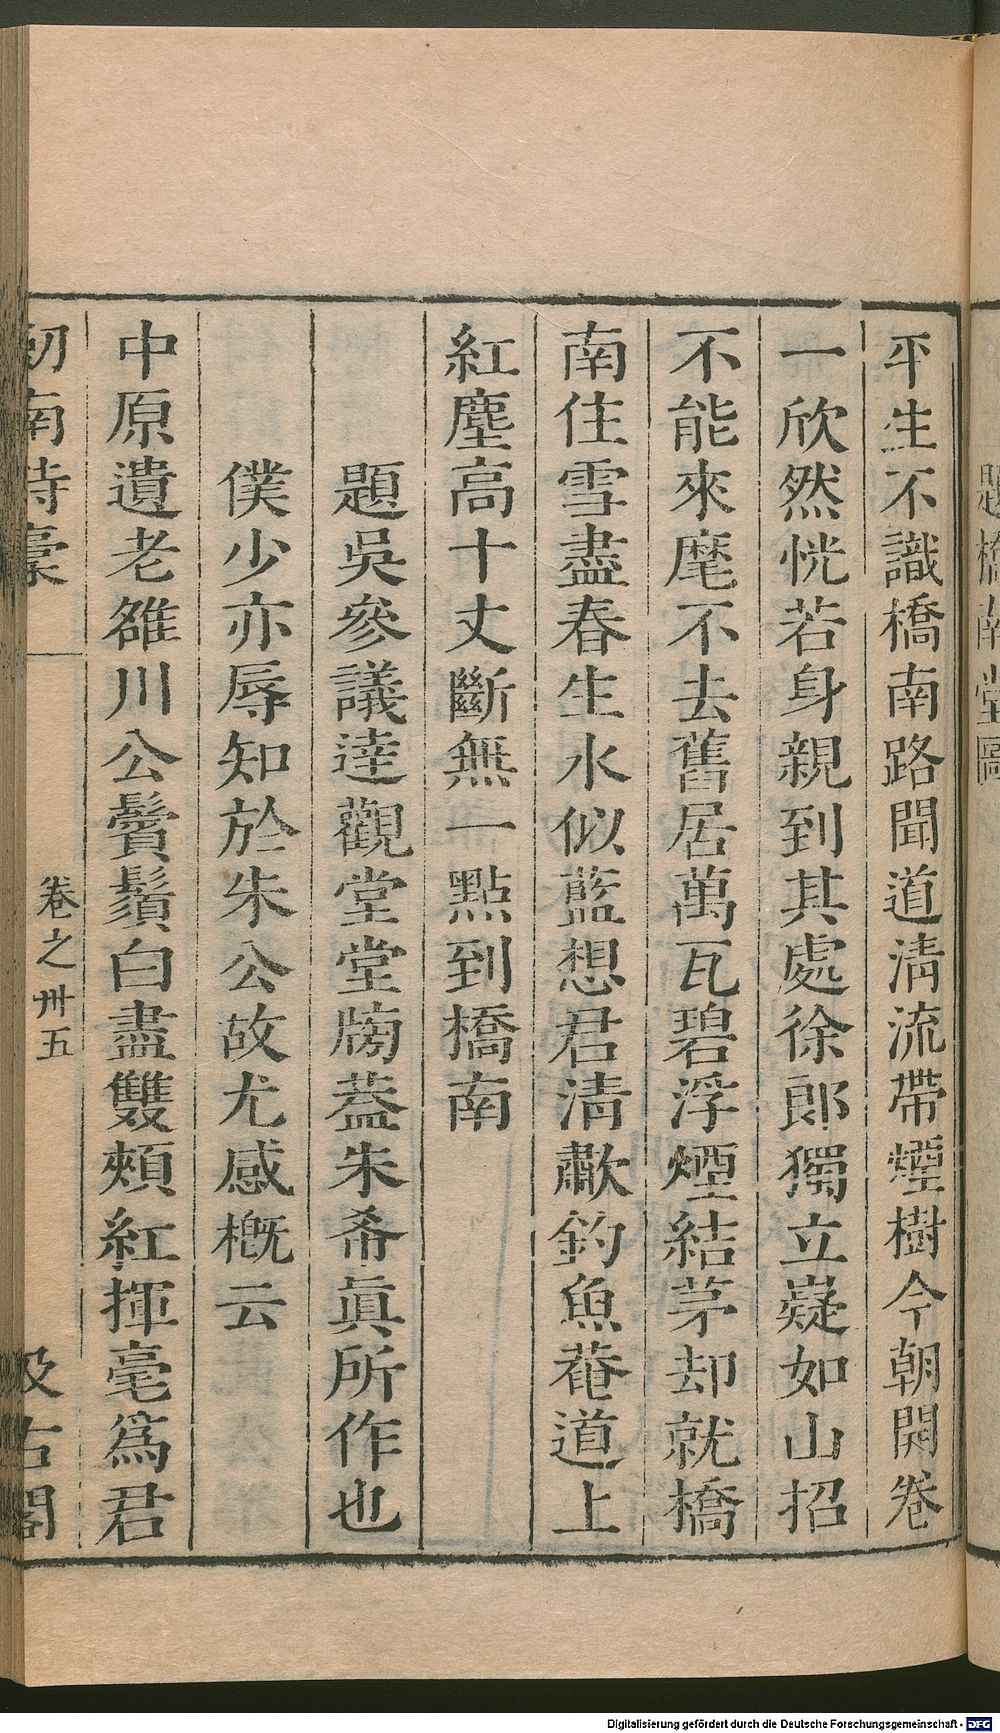 題橋南堂圖
平生不識橋南路聞道清流帶煙樹今朝開卷
一欣然恍若身親到其處徐郎獨立嶷如山招
不能來麾不去舊居萬瓦碧浮煙結茅却就橋
南住雪盡春生水似藍想君清歗釣魚菴道上
紅塵高十丈斷無一點到橋南
題吳參議達觀堂堂牓葢朱希眞所作也
僕少亦辱知於朱公故尤感槪云
中原遺老雒川公鬢鬚白盡雙頰紅揮毫爲君
劒南詩稾
卷之卅五
汲古閣
Digitalisierung gefördert durch die Deutsche Forschungsgemeinschaft - DFG